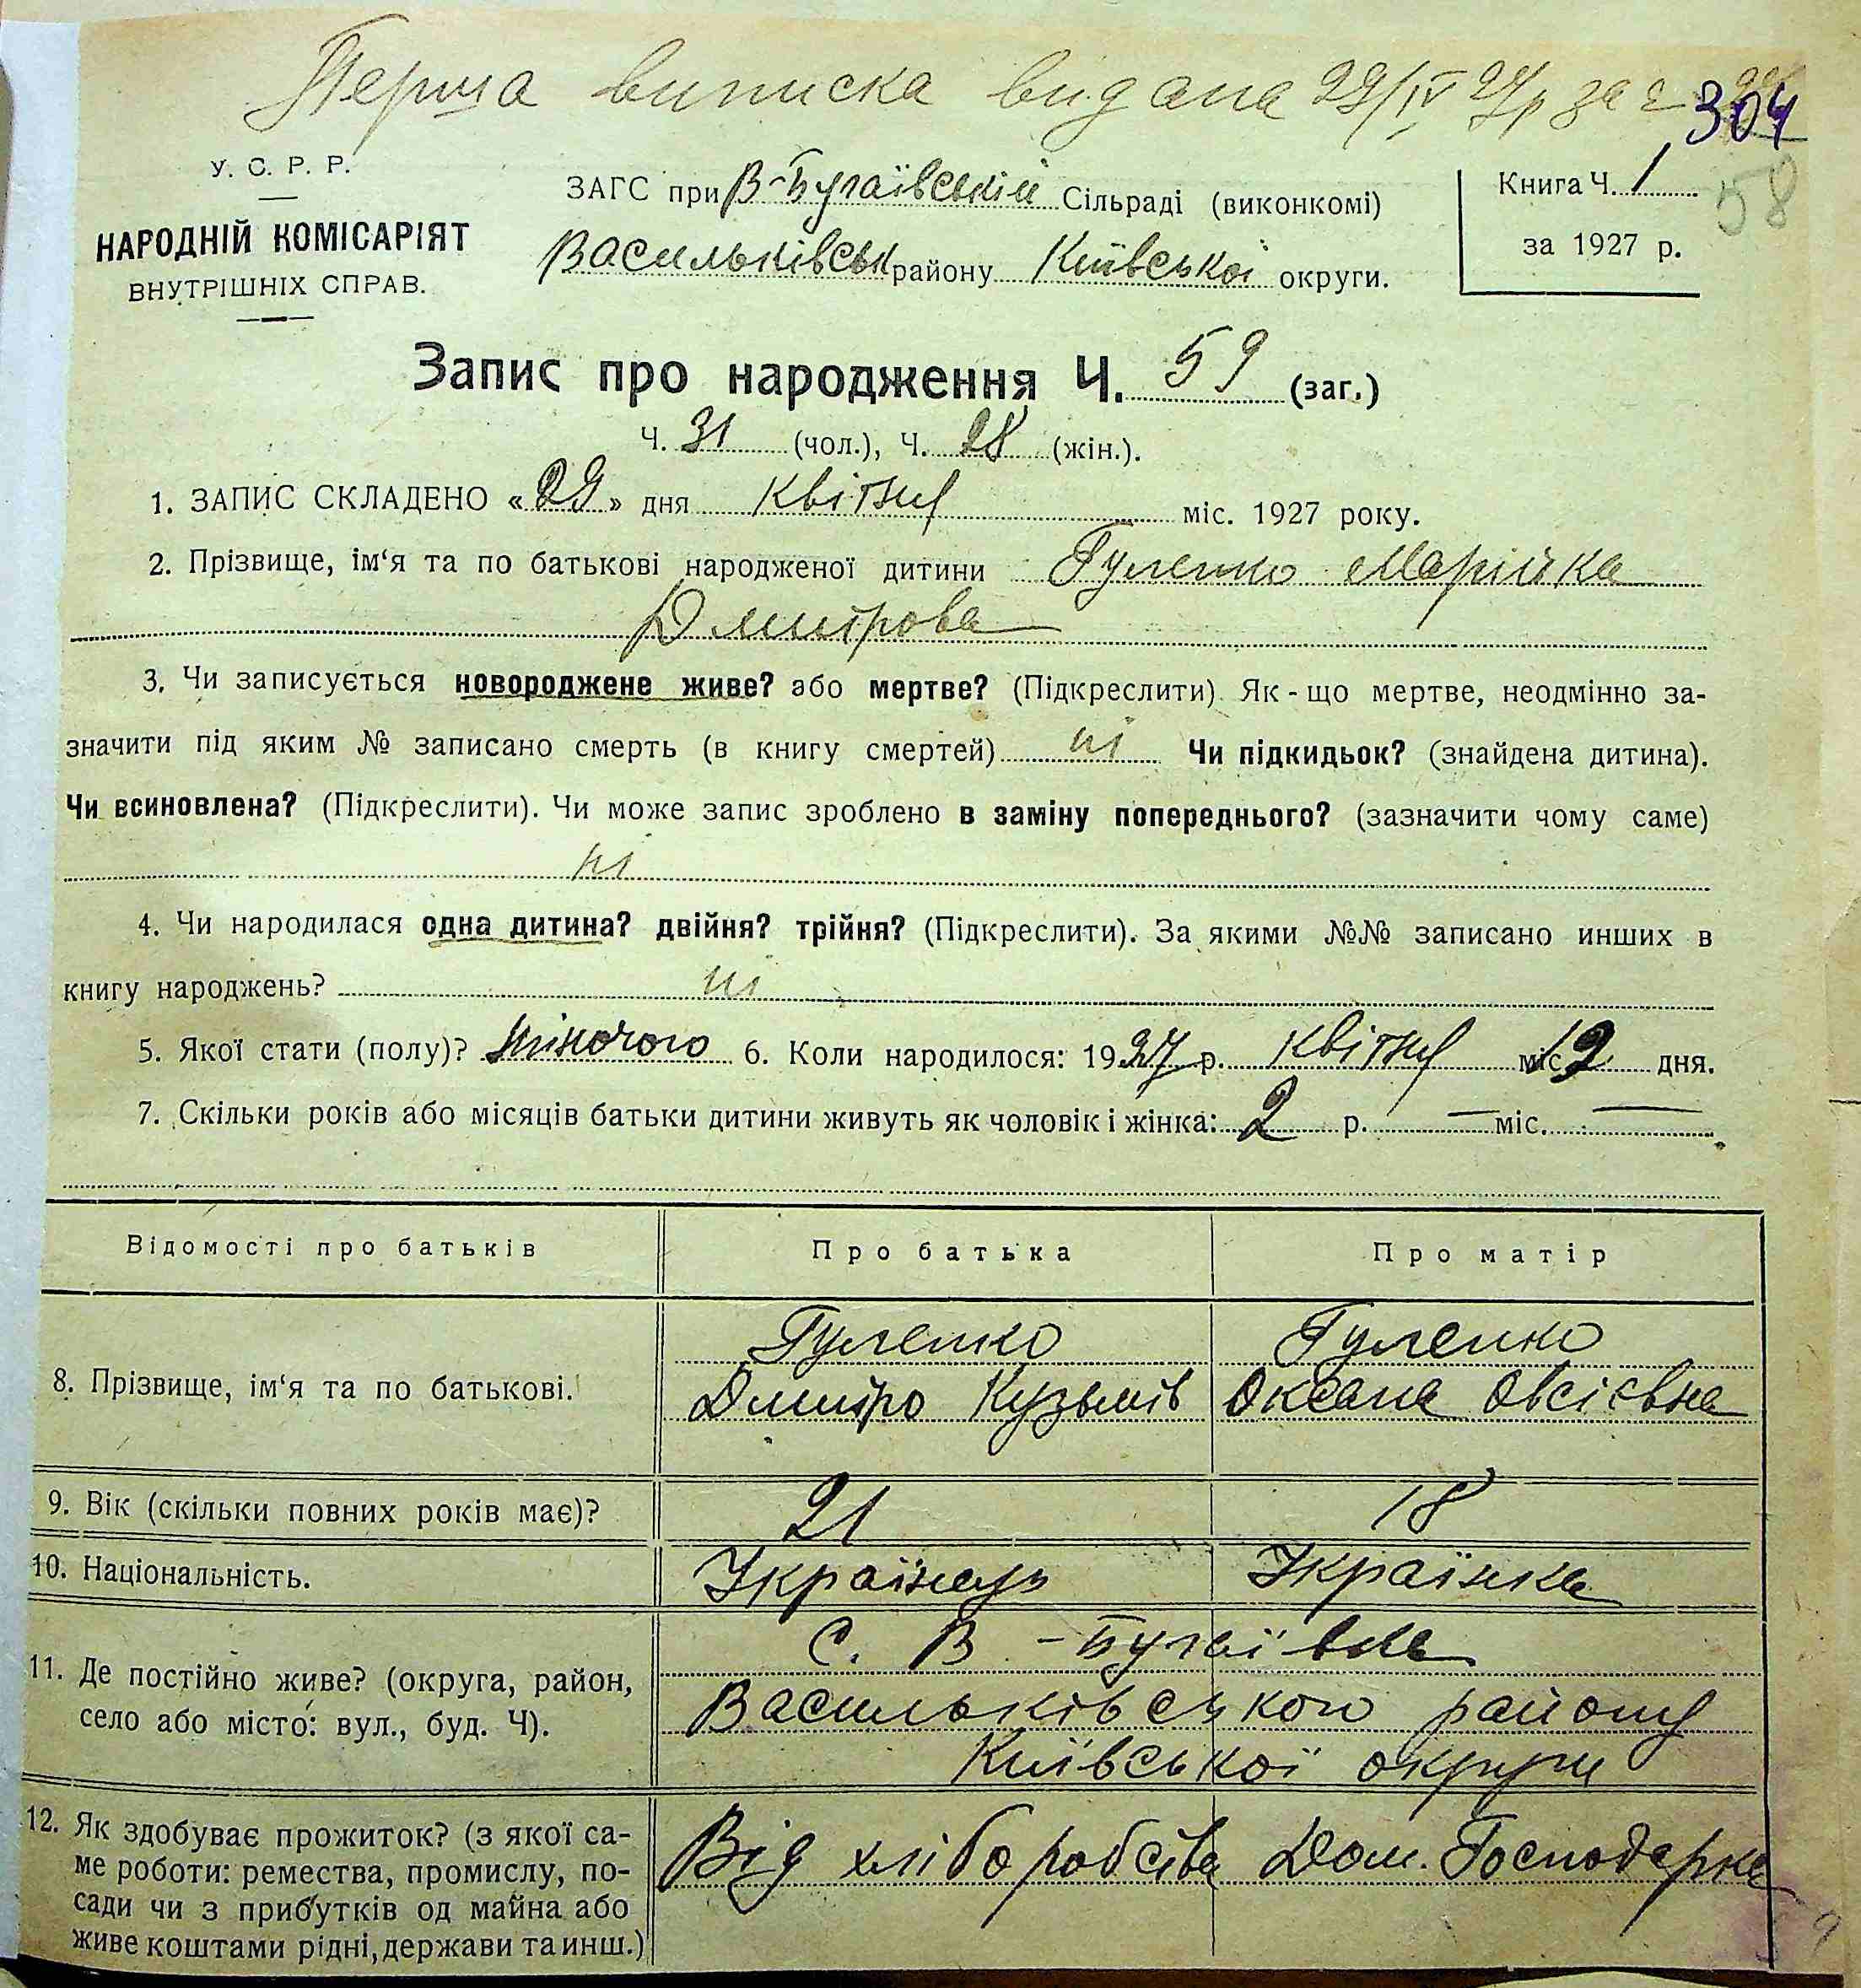 Перша виписка видана 29/IV 27р за
304
58
У. С. Р. Р.
НАРОДНІЙ КОМІСАРІЯТ
ВНУТРІШНІХ СПРАВ.
ЗАГС при В-Бугаївській Сільраді (виконкомі)
Васильківськ району Київської округи.
Книга Ч. 1
за 1927 р.
Запис про народження Ч. 59 (заг.)
Ч. 31 (чол.), Ч. 28 (жін.).
1. ЗАПИС СКЛАДЕНО « 29 » дня Квітня міс. 1927 року.
2. Прізвище, ім‘я та по батькові народженої дитини Гуленко Марійка
Дмитрова
3. Чи записується новороджене живе? або мертве? (Підкреслити). Як-що мертве, неодмінно за-
значити під яким № записано смерть (в книгу смертей) ні Чи підкидьок? (знайдена дитина).
Чи всиновлена? (Підкреслити). Чи може запис зроблено в заміну попереднього? (зазначити чому саме)
ні
4. Чи народилася одна дитина? двійня? трійня? (Підкреслити). За якими №№ записано инших в
книгу народжень? ні
5. Якої стати (полу)? Жіночого 6. Коли народилося: 1927 р. Квітня міс. 12 дня.
7. Скільки років або місяців батьки дитини живуть як чоловік і жінка: 2 р. — міс. —
Відомості про батьків Про батька Про матір
8. Прізвище, ім‘я та по батькові.
Гуленко
Дмитро Кузьмів
Гуленко
Оксана Овсієвна
9. Вік (скільки повних років має)? 21 18
10. Національність. Українець Українка
11. Де постійно живе? (округа, район,
село або місто: вул., буд. Ч).
С. В-Бугаївка
Васильківського району
Київської округи
12. Як здобуває прожиток? (з якої са-
ме роботи: ремества, промислу, по-
сади чи з прибутків од майна або
живе коштами рідні, держави та инш.)
Від хліборобства Дом. Господарка